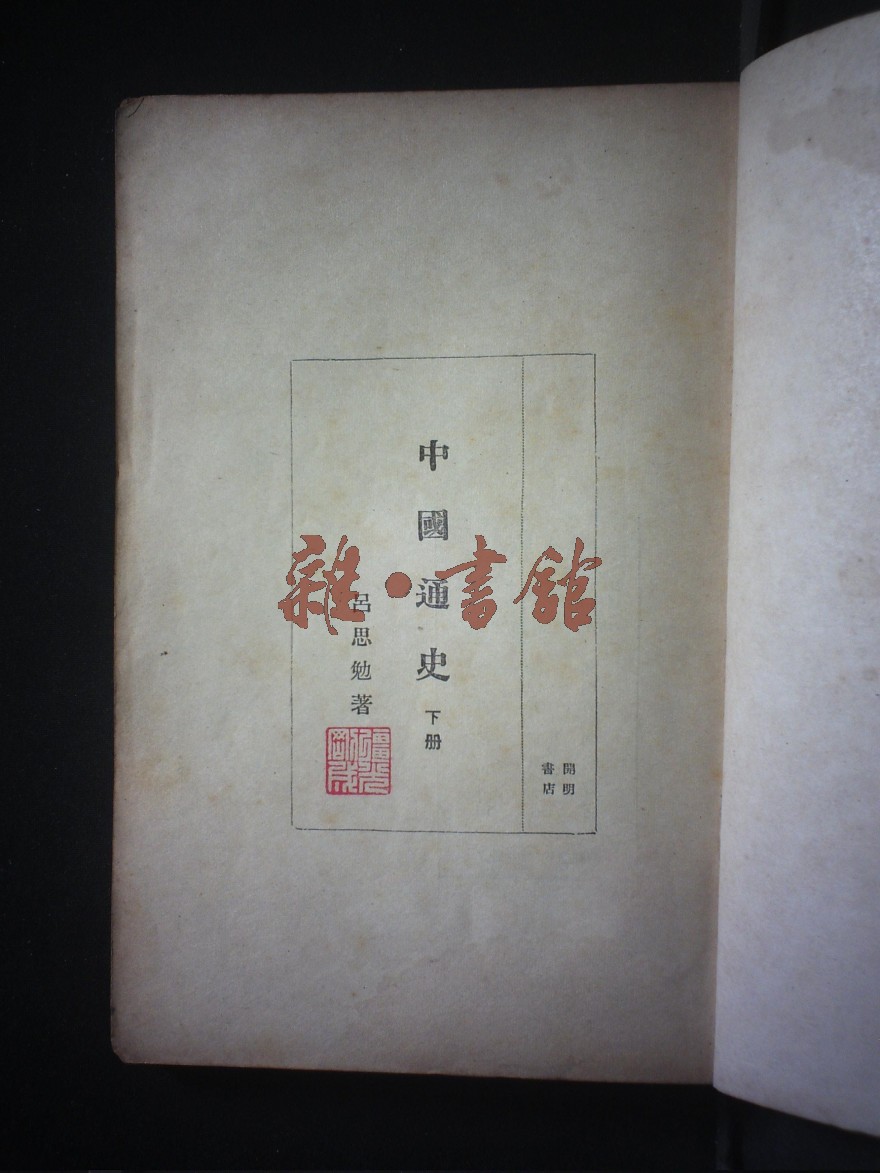 中國通史 下册
呂思勉著
開明
書店
雜·書館